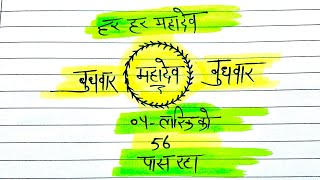 हर हर महादेव
बुधवार महादेव बुधवार
०५-तारिक को
56
पास रहा